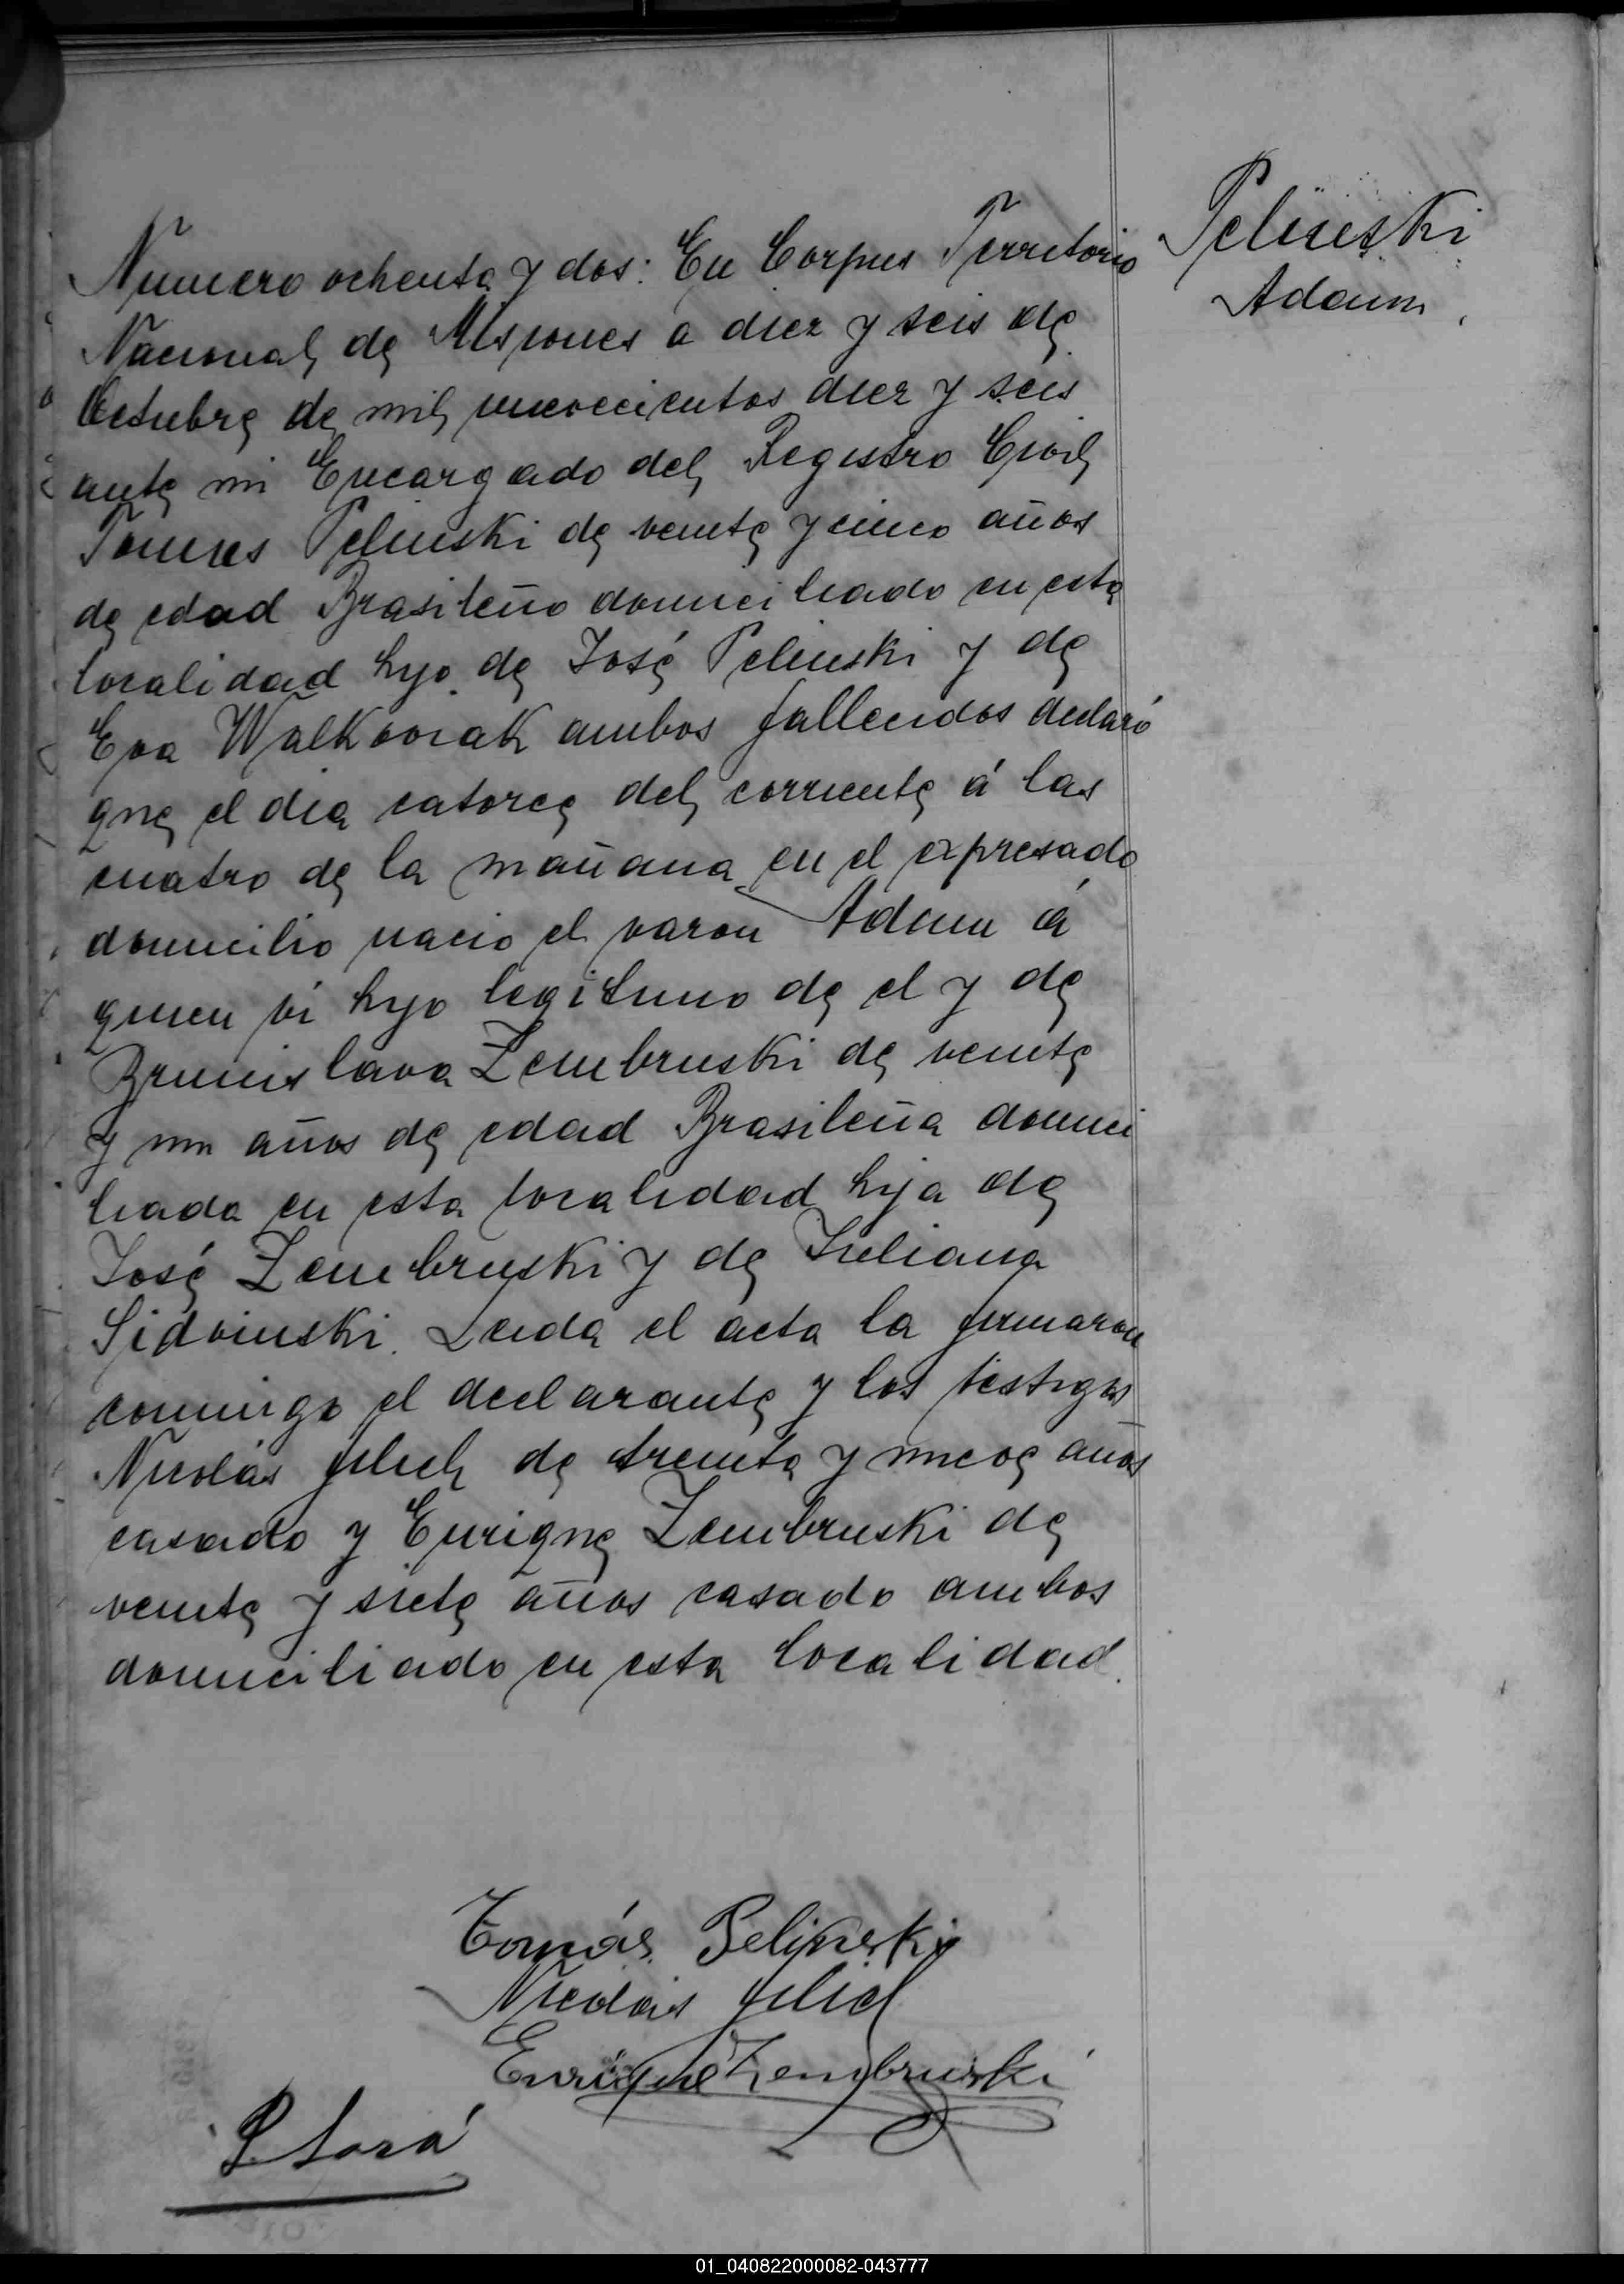 Numero ochenta y dos: En Corpus Territorio
Nacional de Misiones a diez y seis de
Octubre de mil novecientos diez y seis
ante mi Encargado del Registro Civil
Tomas Pelinski de veinte y cinco años
de edad Brasileño domiciliado en esta
localidad hijo de José Pelinski y de
Eva Walkoviak ambos fallecidos declaró
que el dia catorce del corriente á las
cuatro de la mañana en el expresado
domicilio nacio el varon Adam á
quien vi hijo legitimo de el y de
Brunislava Zembruski de veinte
y un años de edad Brasileña domici
liada en esta localidad hija de
José Zembruski y de Juliana
Sidoinski. Leida el acta la firmaron
conmigo el declarante y los testigos
Nicolás de treinta y nueve años
casado y Enrique Zembruski de
veinte y siete años casado ambos
domiciliado en esta localidad.
Pelinski
Adam.
Tomás Pelinski
Nicolás
Enrique Zembruski
01_040822000082-043777